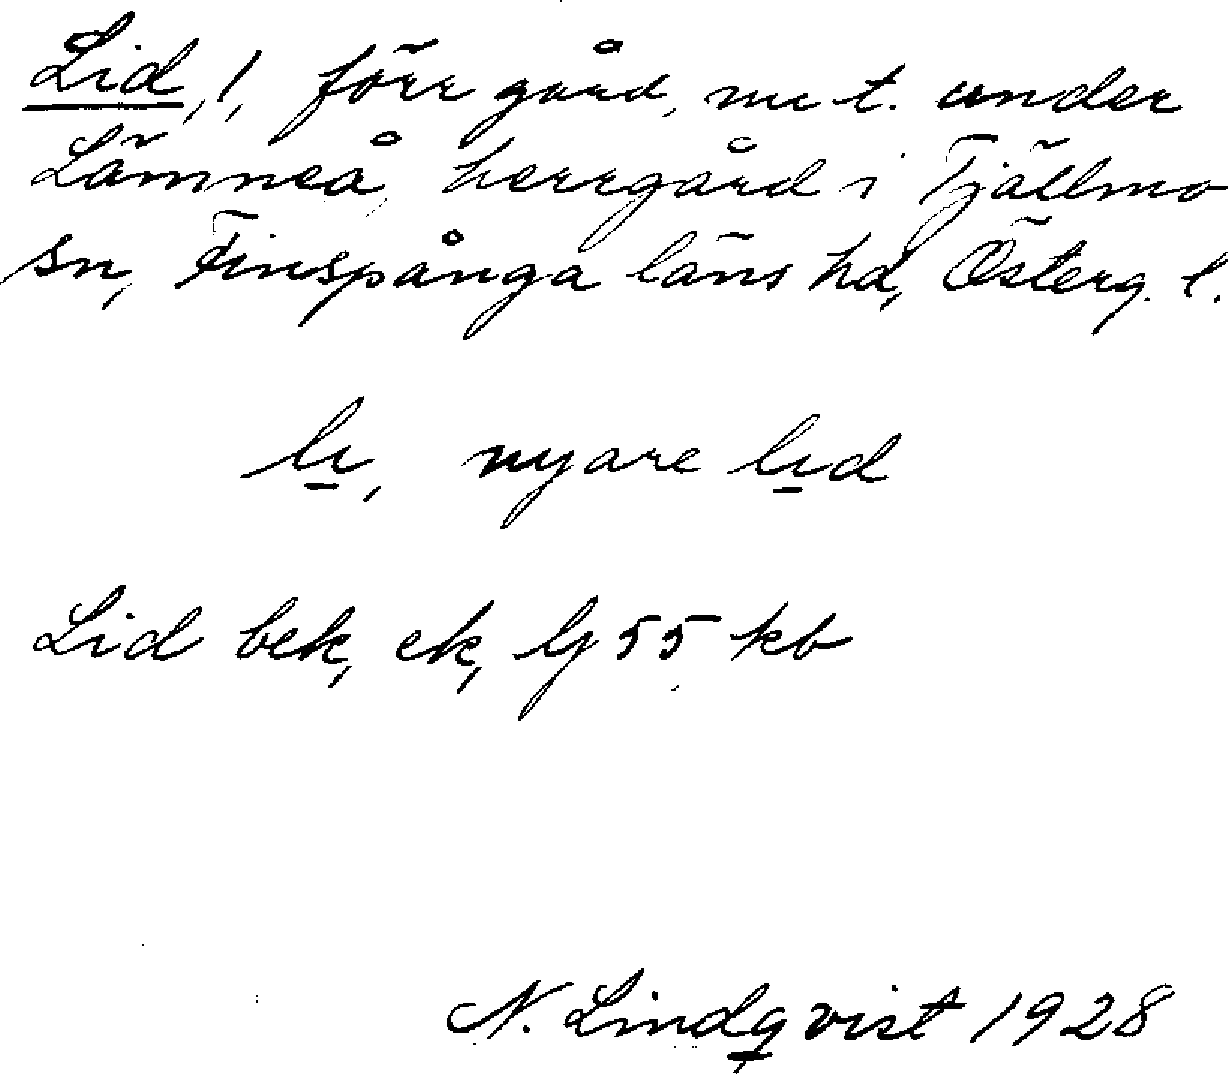 Lid, l, förr gård, nu t. under
Lämneå, herrgård i Tjällmo
sn, Finspånga läns hd, Österg. l.
lı, nyare lıd
Lid bek, ek, Gj 55 kb
N. Lindqvist 1928